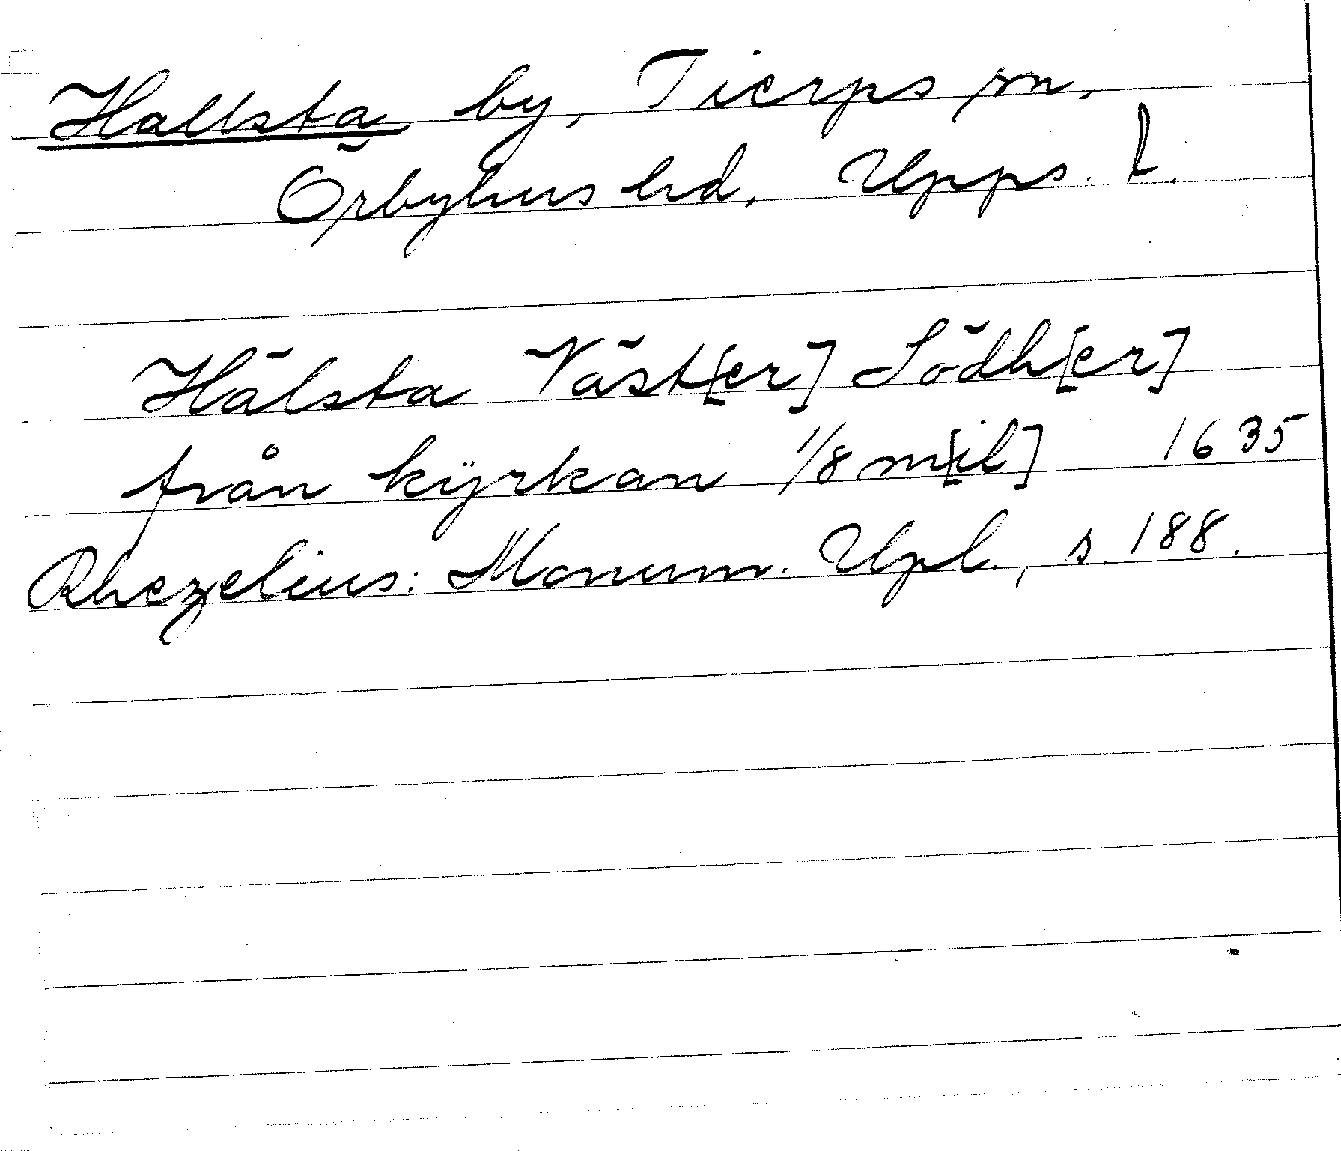 Hallsta by, Tierps sn,
Örbyhus hd, Upps. l.
Hälsta Väst[er] Södh[er]
från kÿrkan 1/8 m[il] 1635
Rhezelius: Monum. Upl., s. 188.